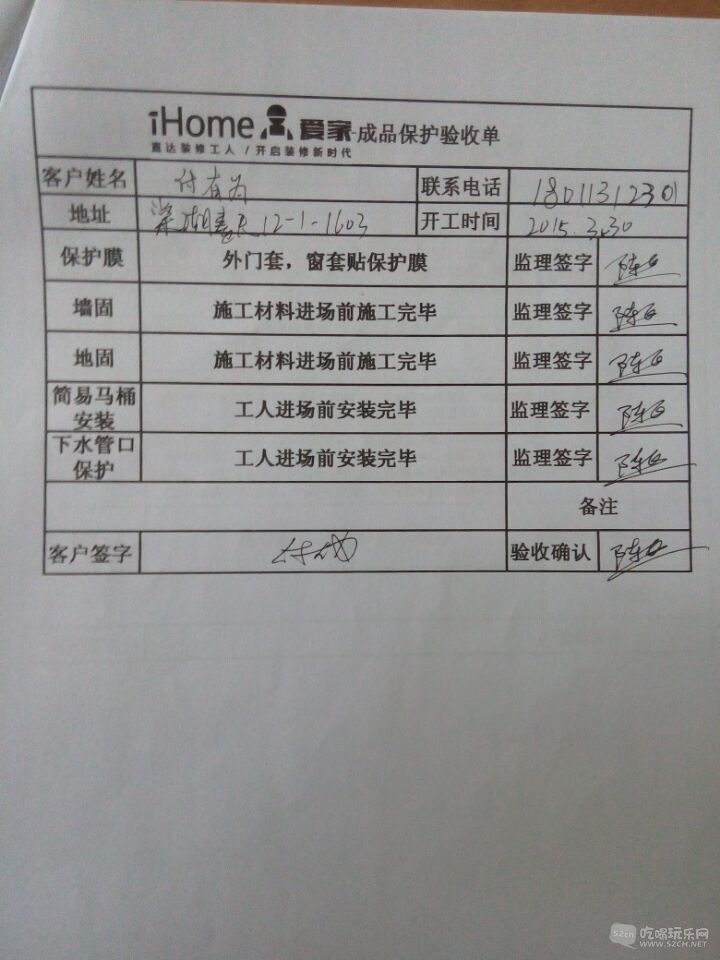 iHome 爱家-成品保护验收单
惠达装修工人 / 开启装修新时代
客户姓名 付有为 联系电话 18011312301
地址 12-1-1603 开工时间 2015.3.30
保护膜 外门套，窗套贴保护膜 监理签字
墙固 施工材料进场前施工完毕 监理签字
地固 施工材料进场前施工完毕 监理签字
简易马桶安装 工人进场前安装完毕 监理签字
下水管口保护 工人进场前安装完毕 监理签字
备注
客户签字 验收确认
52ch 吃喝玩乐网
WWW.52CH.NET